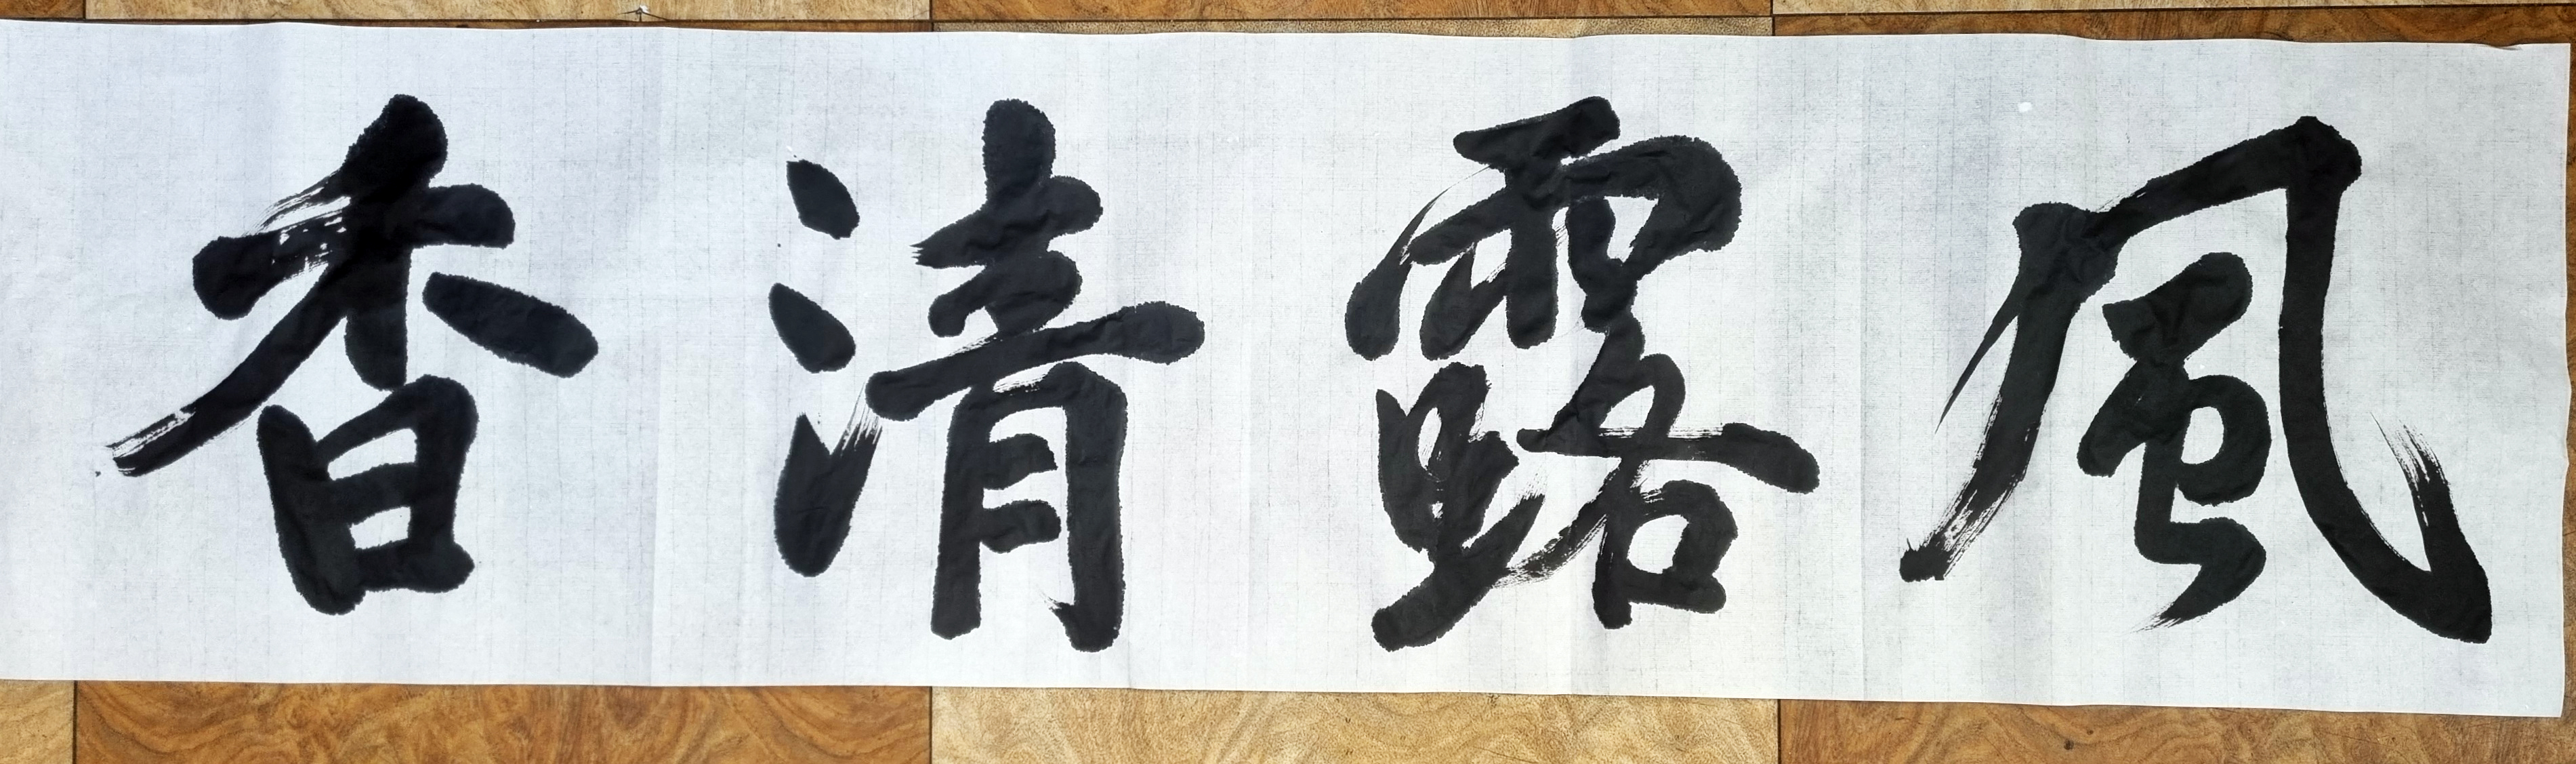 風露清香